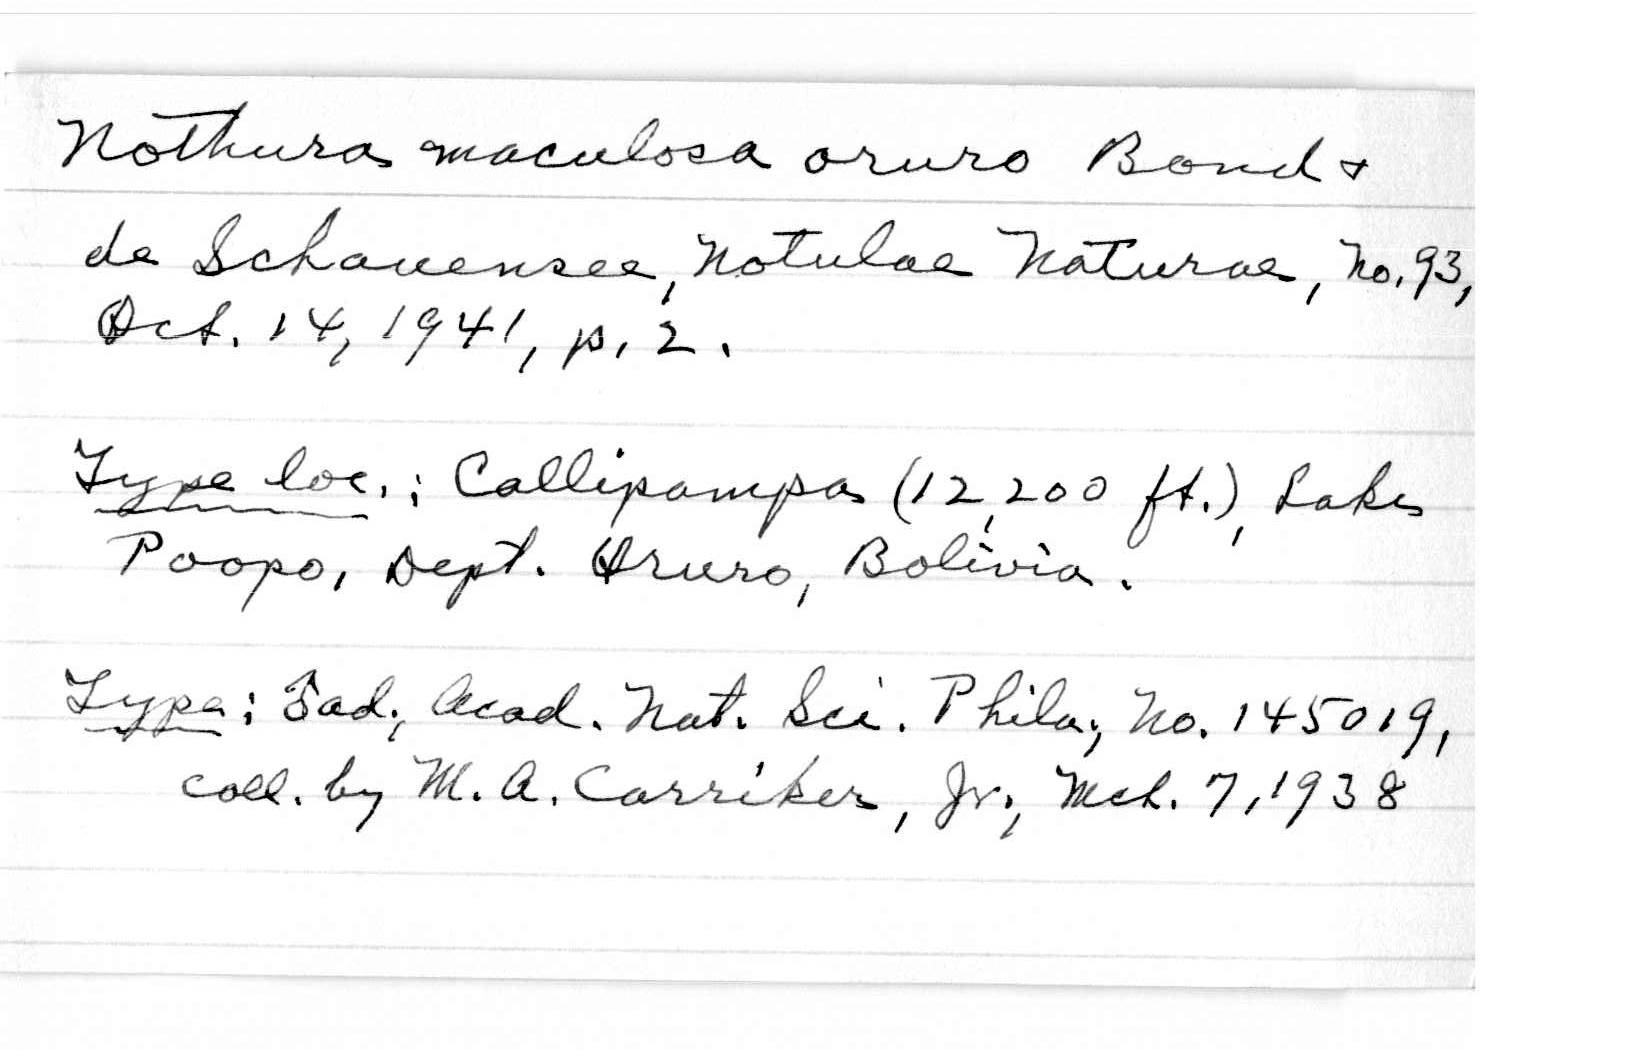 Nothura maculosa oruro Bond &
de Schauensee, Notulae Naturae, No. 93,
Oct. 14, 1941, p. 2.
Type loc.: Callipampa (12,200 ft.), Lake
Poopo, Dept. Oruro, Bolivia.
Type: ad., Acad. Nat. Sci. Phila., No. 145019,
coll. by M. A. Carriker, Jr., Mch. 7, 1938